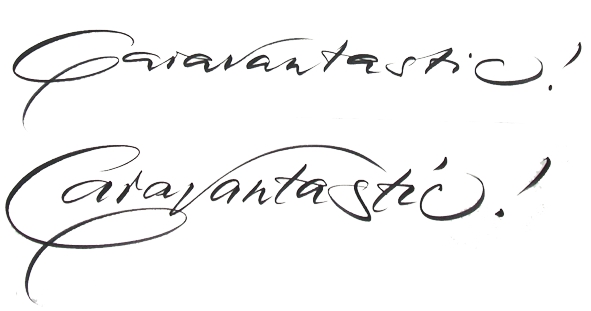 Caravantastic!
Caravantastic!